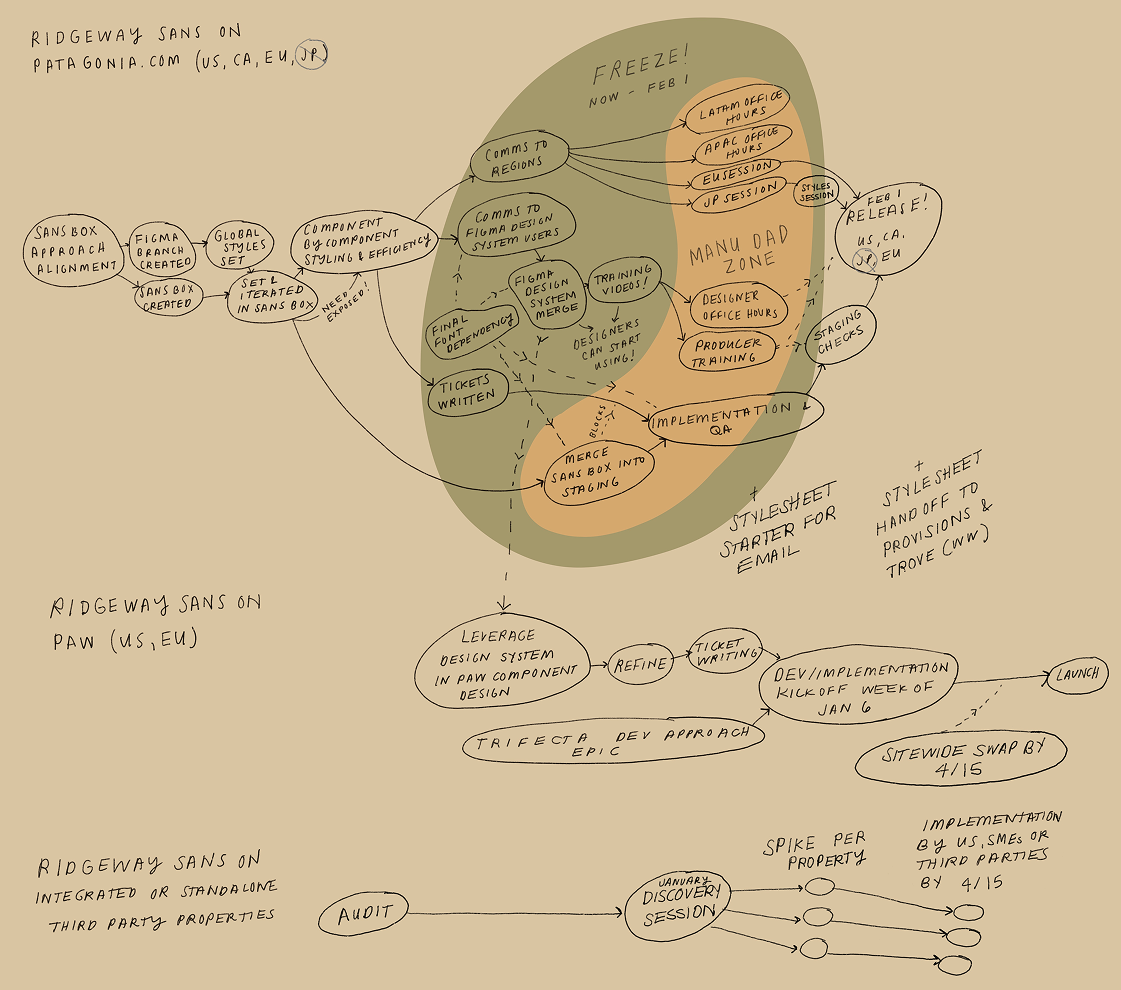 RIDGEWAY SANS ON
PATAGONIA.COM (US, CA, EU, JP)
FREEZE!
NOW - FEB 1
SANS BOX
APPROACH
ALIGNMENT
FIGMA
BRANCH
CREATED
SANS BOX
CREATED
GLOBAL
STYLES
SET
SET &
ITERATED
IN SANS BOX
NEED
EXPOSED!
COMPONENT
BY COMPONENT
STYLING & EFFICIENCY
COMMS TO
REGIONS
COMMS TO
FIGMA DESIGN
SYSTEM USERS
FIGMA
DESIGN
SYSTEM
MERGE
TRAINING
VIDEOS!
FINAL
FONT
DEPENDENCY
DESIGNERS
CAN START
USING!
TICKETS
WRITTEN
LATAM OFFICE
HOURS
APAC OFFICE
HOURS
EU SESSION
JP SESSION
STYLES
SESSION
MANU DAD
ZONE
DESIGNER
OFFICE HOURS
PRODUCER
TRAINING
BLOCKS
IMPLEMENTATION &
QA
MERGE
SANS BOX INTO
STAGING
STAGING
CHECKS
FEB 1
RELEASE!
US, CA,
JP, EU
+
STYLESHEET
STARTER FOR
EMAIL
+
STYLESHEET
HANDOFF TO
PROVISIONS &
TROVE (WW)
RIDGEWAY SANS ON
PAW (US, EU)
LEVERAGE
DESIGN SYSTEM
IN PAW COMPONENT
DESIGN
REFINE
TICKET
WRITING
TRIFECTA DEV APPROACH
EPIC
DEV/IMPLEMENTATION
KICKOFF WEEK OF
JAN 6
LAUNCH
SITEWIDE SWAP BY
4/15
RIDGEWAY SANS ON
INTEGRATED OR STANDALONE
THIRD PARTY PROPERTIES
AUDIT
JANUARY
DISCOVERY
SESSION
SPIKE PER
PROPERTY
IMPLEMENTATION
BY US, SMEs OR
THIRD PARTIES
BY 4/15